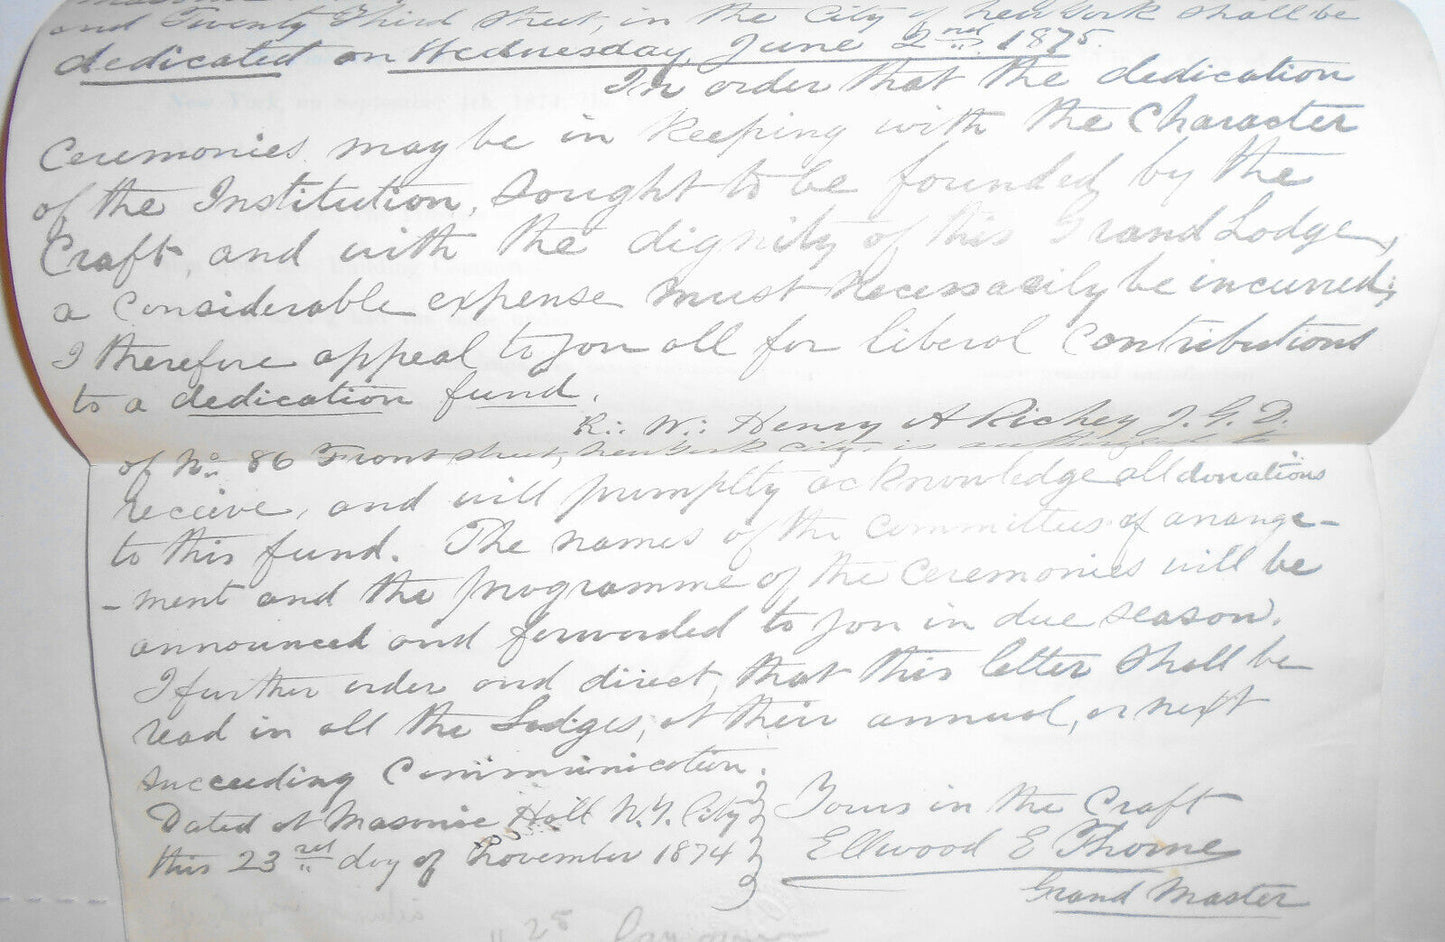 and Twenty Third Street, in the City of New York shall be
dedicated on Wednesday, June 2nd 1875.
In order that the dedication
Ceremonies may be in keeping with the Character
of the Institution, sought to be founded by the
Craft, and with the dignity of this Grand Lodge,
a considerable expense must necessarily be incurred;
I therefore appeal to you all for liberal contributions
to a dedication fund.
R∴ W∴ Henry A Richey J. G. D.
of No 86 Front Street, New York City, is authorized to
receive, and will promptly acknowledge all donations
to this fund. The names of the Committees of arrange-
-ment and the programme of the Ceremonies will be
announced and forwarded to you in due season.
I further order and direct, that this letter shall be
read in all the Lodges, at their annual, or next
succeeding Communication.
Dated at Masonic Hall N.Y. City
this 23rd day of November 1874
Yours in the Craft
Ellwood E Thorne
Grand Master